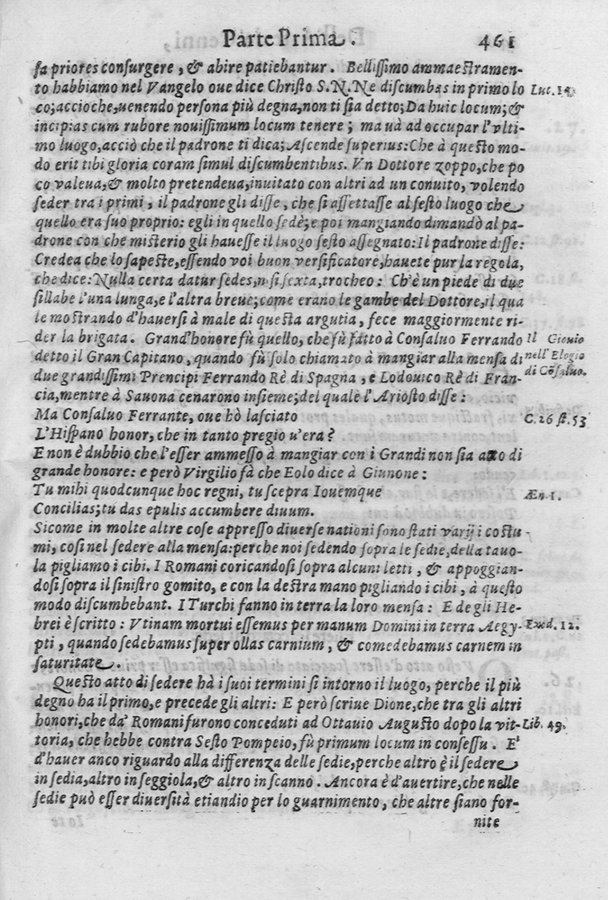 Parte Prima. 461
ſa priores conſurgere, & abire patiebantur. Belliſſimo ammaeſtramen-
to habbiamo nel Vangelo oue dice Chriſto S.N. Ne diſcumbas in primo lo Luc. 14.
co; accioche, uenendo perſona più degna, non ti ſia detto; Da huic locum; &
incipias cum rubore nouiſſimum locum tenere; ma uà ad occupar l'vlti-
mo luogo, acciò che il padrone ti dica; Aſcende ſuperius: Che à queſto mo-
do erit tibi gloria coram ſimul diſcumbentibus. Vn Dottore zoppo, che po
co valeua, & molto pretendeua, inuitato con altri ad un conuito, volendo
ſeder tra i primi, il padrone gli diſſe, che ſi aſſettaſſe al ſeſto luogo che
quello era ſuo proprio: egli in quello ſedè; e poi mangiando dimandò al pa-
drone con che miſterio gli haueſſe il luogo ſeſto aſſegnato: Il padrone diſſe:
Credea che lo ſapeſte, eſſendo voi buon verſificatore, hauete pur la regola,
che dice: Nulla certa datur ſedes, niſi ſexta, trocheo: Ch'è un piede di due
ſillabe l'una lunga, e l'altra breue; come erano le gambe del Dottore, il qua
le moſtrando d'hauerſi à male di queſta argutia, fece maggiormente ri-
der la brigata. Grand'honore fù quello, che fù fatto à Conſaluo Ferrando Il Giouio
detto il Gran Capitano, quando fù ſolo chiamato à mangiar alla menſa di nell'Elogio
due grandiſſimi Prencipi Ferrando Rè di Spagna, e Lodouico Rè di Fran- di Cõſaluo.
cia, mentre à Sauona cenarono inſieme; del quale l'Arioſto diſſe:
Ma Conſaluo Ferrante, oue hò laſciato C. 26 ſt. 53
L'Hiſpano honor, che in tanto pregio u'era?
E non è dubbio che l'eſſer ammeſſo à mangiar con i Grandi non ſia atto di
grande honore: e però Virgilio fà che Eolo dice à Giunone:
Tu mihi quodcunque hoc regni, tu ſcepra Iouemque Æn 1.
Concilias; tu das epulis accumbere diuum.
Sicome in molte altre coſe appreſſo diuerſe nationi ſono ſtati varij i coſtu
mi, coſi nel ſedere alla menſa: perche noi ſedendo ſopra le ſedie, della tauo-
la pigliamo i cibi. I Romani coricandoſi ſopra alcuni letti, & appoggian-
doſi ſopra il ſiniſtro gomito, e con la deſtra mano pigliando i cibi, à queſto
modo diſcumbebant. I Turchi fanno in terra la loro menſa: E de gli He-
brei è ſcritto: Vtinam mortui eſſemus per manum Domini in terra Aegy- Exod. 12.
pti, quando ſedebamus ſuper ollas carnium, & comedebamus carnem in
ſaturitate.
Queſto atto di ſedere hà i ſuoi termini ſi intorno il luogo, perche il più
degno ha il primo, e precede gli altri: E però ſcriue Dione, che tra gli altri
honori, che da' Romani furono conceduti ad Ottauio Auguſto dopo la vit- Lib. 49.
toria, che hebbe contra Seſto Pompeio, fù primum locum in conſeſſu. E'
d'hauer anco riguardo alla differenza delle ſedie, perche altro è il ſedere
in ſedia, altro in ſeggiola, & altro in ſcanno. Ancora è d'auertire, che nelle
ſedie può eſſer diuerſità etiandio per lo guarnimento, che altre ſiano for-
nite